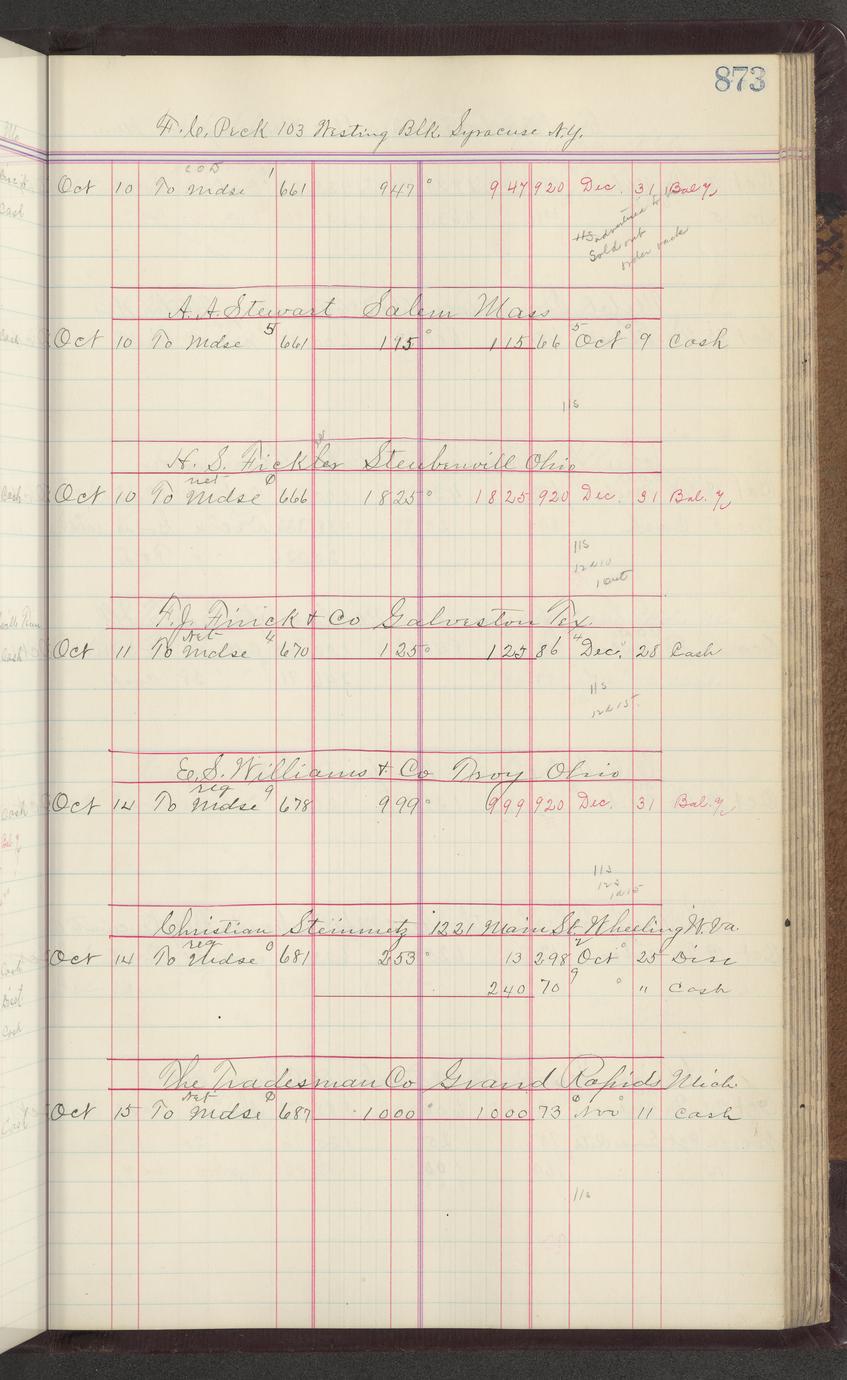 873
F. C. Peck 103 Westing Blk. Syracuse N.Y.
COD
Oct 10 To Mdse 1 661 947 ° 9 47 920 Dec. 31 Bal %
Sold out
order
A. A. Stewart Salem Mass
Oct 10 To Mdse 5 661 115 ° 1 15 66 5 Oct ° 9 Cash
115
H. S. Fickler Steubenvill Ohio
net
Oct 10 To Mdse 0 666 1825 ° 18 25 920 Dec. 31 Bal. %
115
F. J. Finick & Co Galveston Tex.
Net
Oct 11 To Mdse 4 670 125 ° 1 25 86 4 Dec. 28 Cash
115
E. S. Williams & Co Troy Ohio
reg
Oct 14 To Mdse 9 678 999 ° 9 99 920 Dec. 31 Bal. %
115
Christian Steinmetz 1221 Main St. Wheeling W. Va.
reg
Oct 14 To Mdse 0 681 253 ° 13 298 2 Oct ° 25 Disc
2 40 70 9 ° " Cash
The Tradesman Co Grand Rapids Mich.
Net
Oct 15 To Mdse 0 687 1000 ° 10 00 73 0 Nov ° 11 Cash